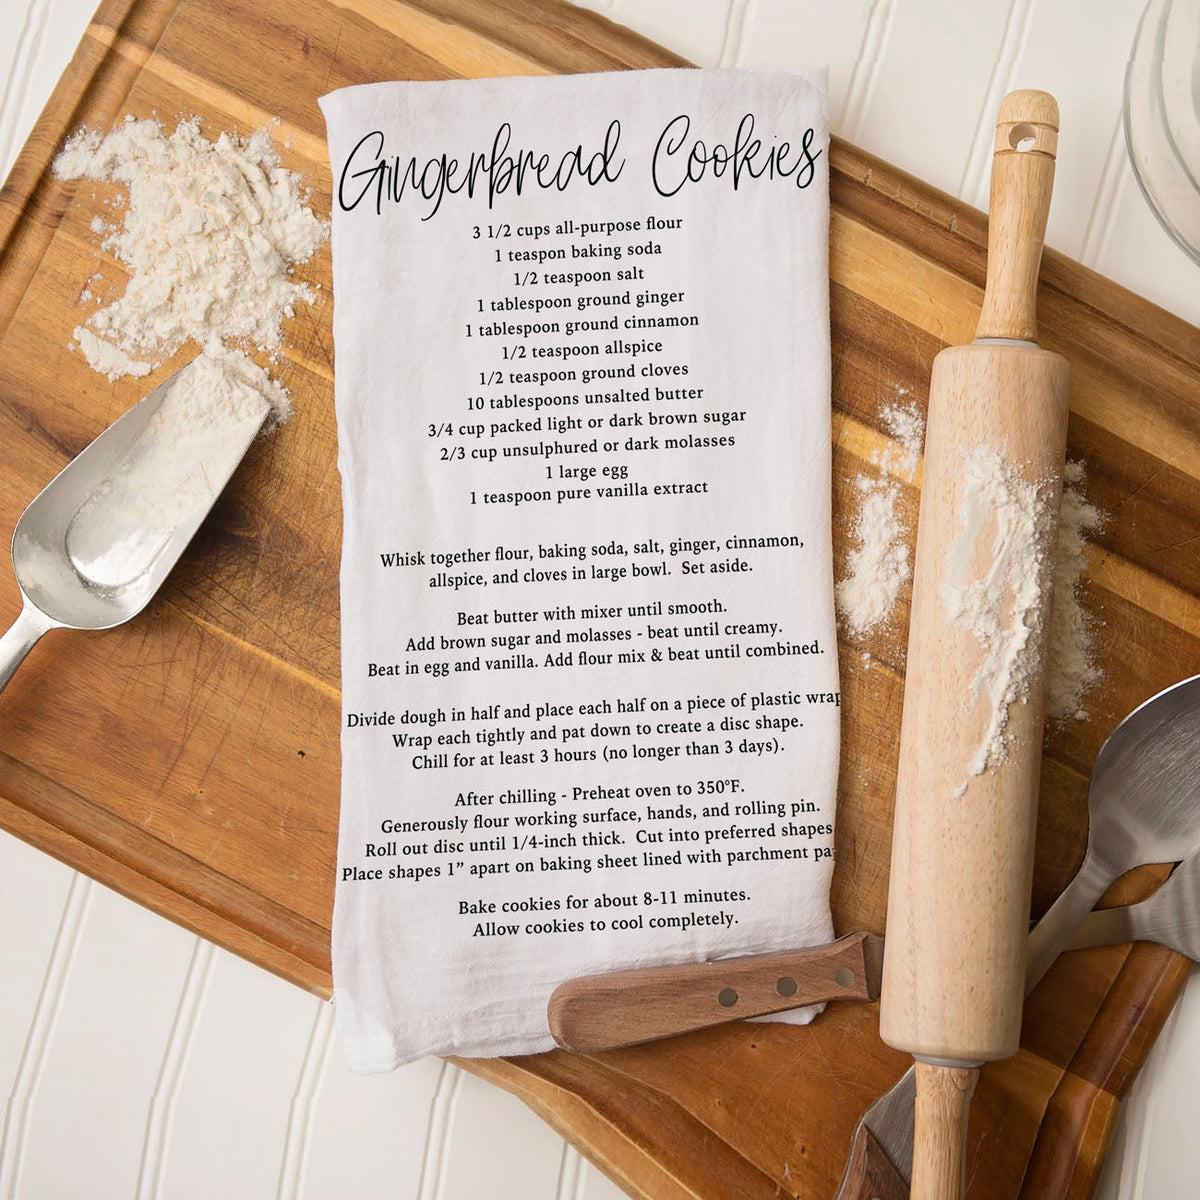 Gingerbread Cookies
3 1/2 cups all-purpose flour
1 teaspon baking soda
1/2 teaspoon salt
1 tablespoon ground ginger
1 tablespoon ground cinnamon
1/2 teaspoon allspice
1/2 teaspoon ground cloves
10 tablespoons unsalted butter
3/4 cup packed light or dark brown sugar
2/3 cup unsulphured or dark molasses
1 large egg
1 teaspoon pure vanilla extract
Whisk together flour, baking soda, salt, ginger, cinnamon,
allspice, and cloves in large bowl. Set aside.
Beat butter with mixer until smooth.
Add brown sugar and molasses - beat until creamy.
Beat in egg and vanilla. Add flour mix & beat until combined.
Divide dough in half and place each half on a piece of plastic wrap
Wrap each tightly and pat down to create a disc shape.
Chill for at least 3 hours (no longer than 3 days).
After chilling - Preheat oven to 350°F.
Generously flour working surface, hands, and rolling pin.
Roll out disc until 1/4-inch thick. Cut into preferred shapes
Place shapes 1” apart on baking sheet lined with parchment pa
Bake cookies for about 8-11 minutes.
Allow cookies to cool completely.